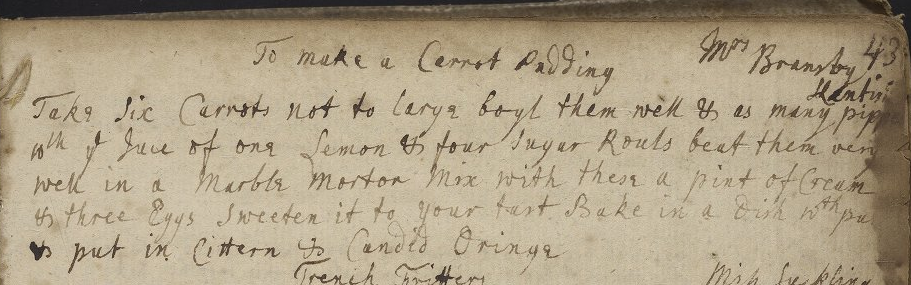 To make a Carrot Pudding Mrs Bransby 43
Take Six Carrots not to large boyl them well & as many pipp
wth ye Juce of one Lemon & four Sugar Rouls beat them very
well in a Marble Mortor Mix with these a pint of Cream
& three Eggs Sweeten it to your tast Bake in a Dish wth pu
& put in Cittern & Candid Oringe
French Fritters Miss Suckling